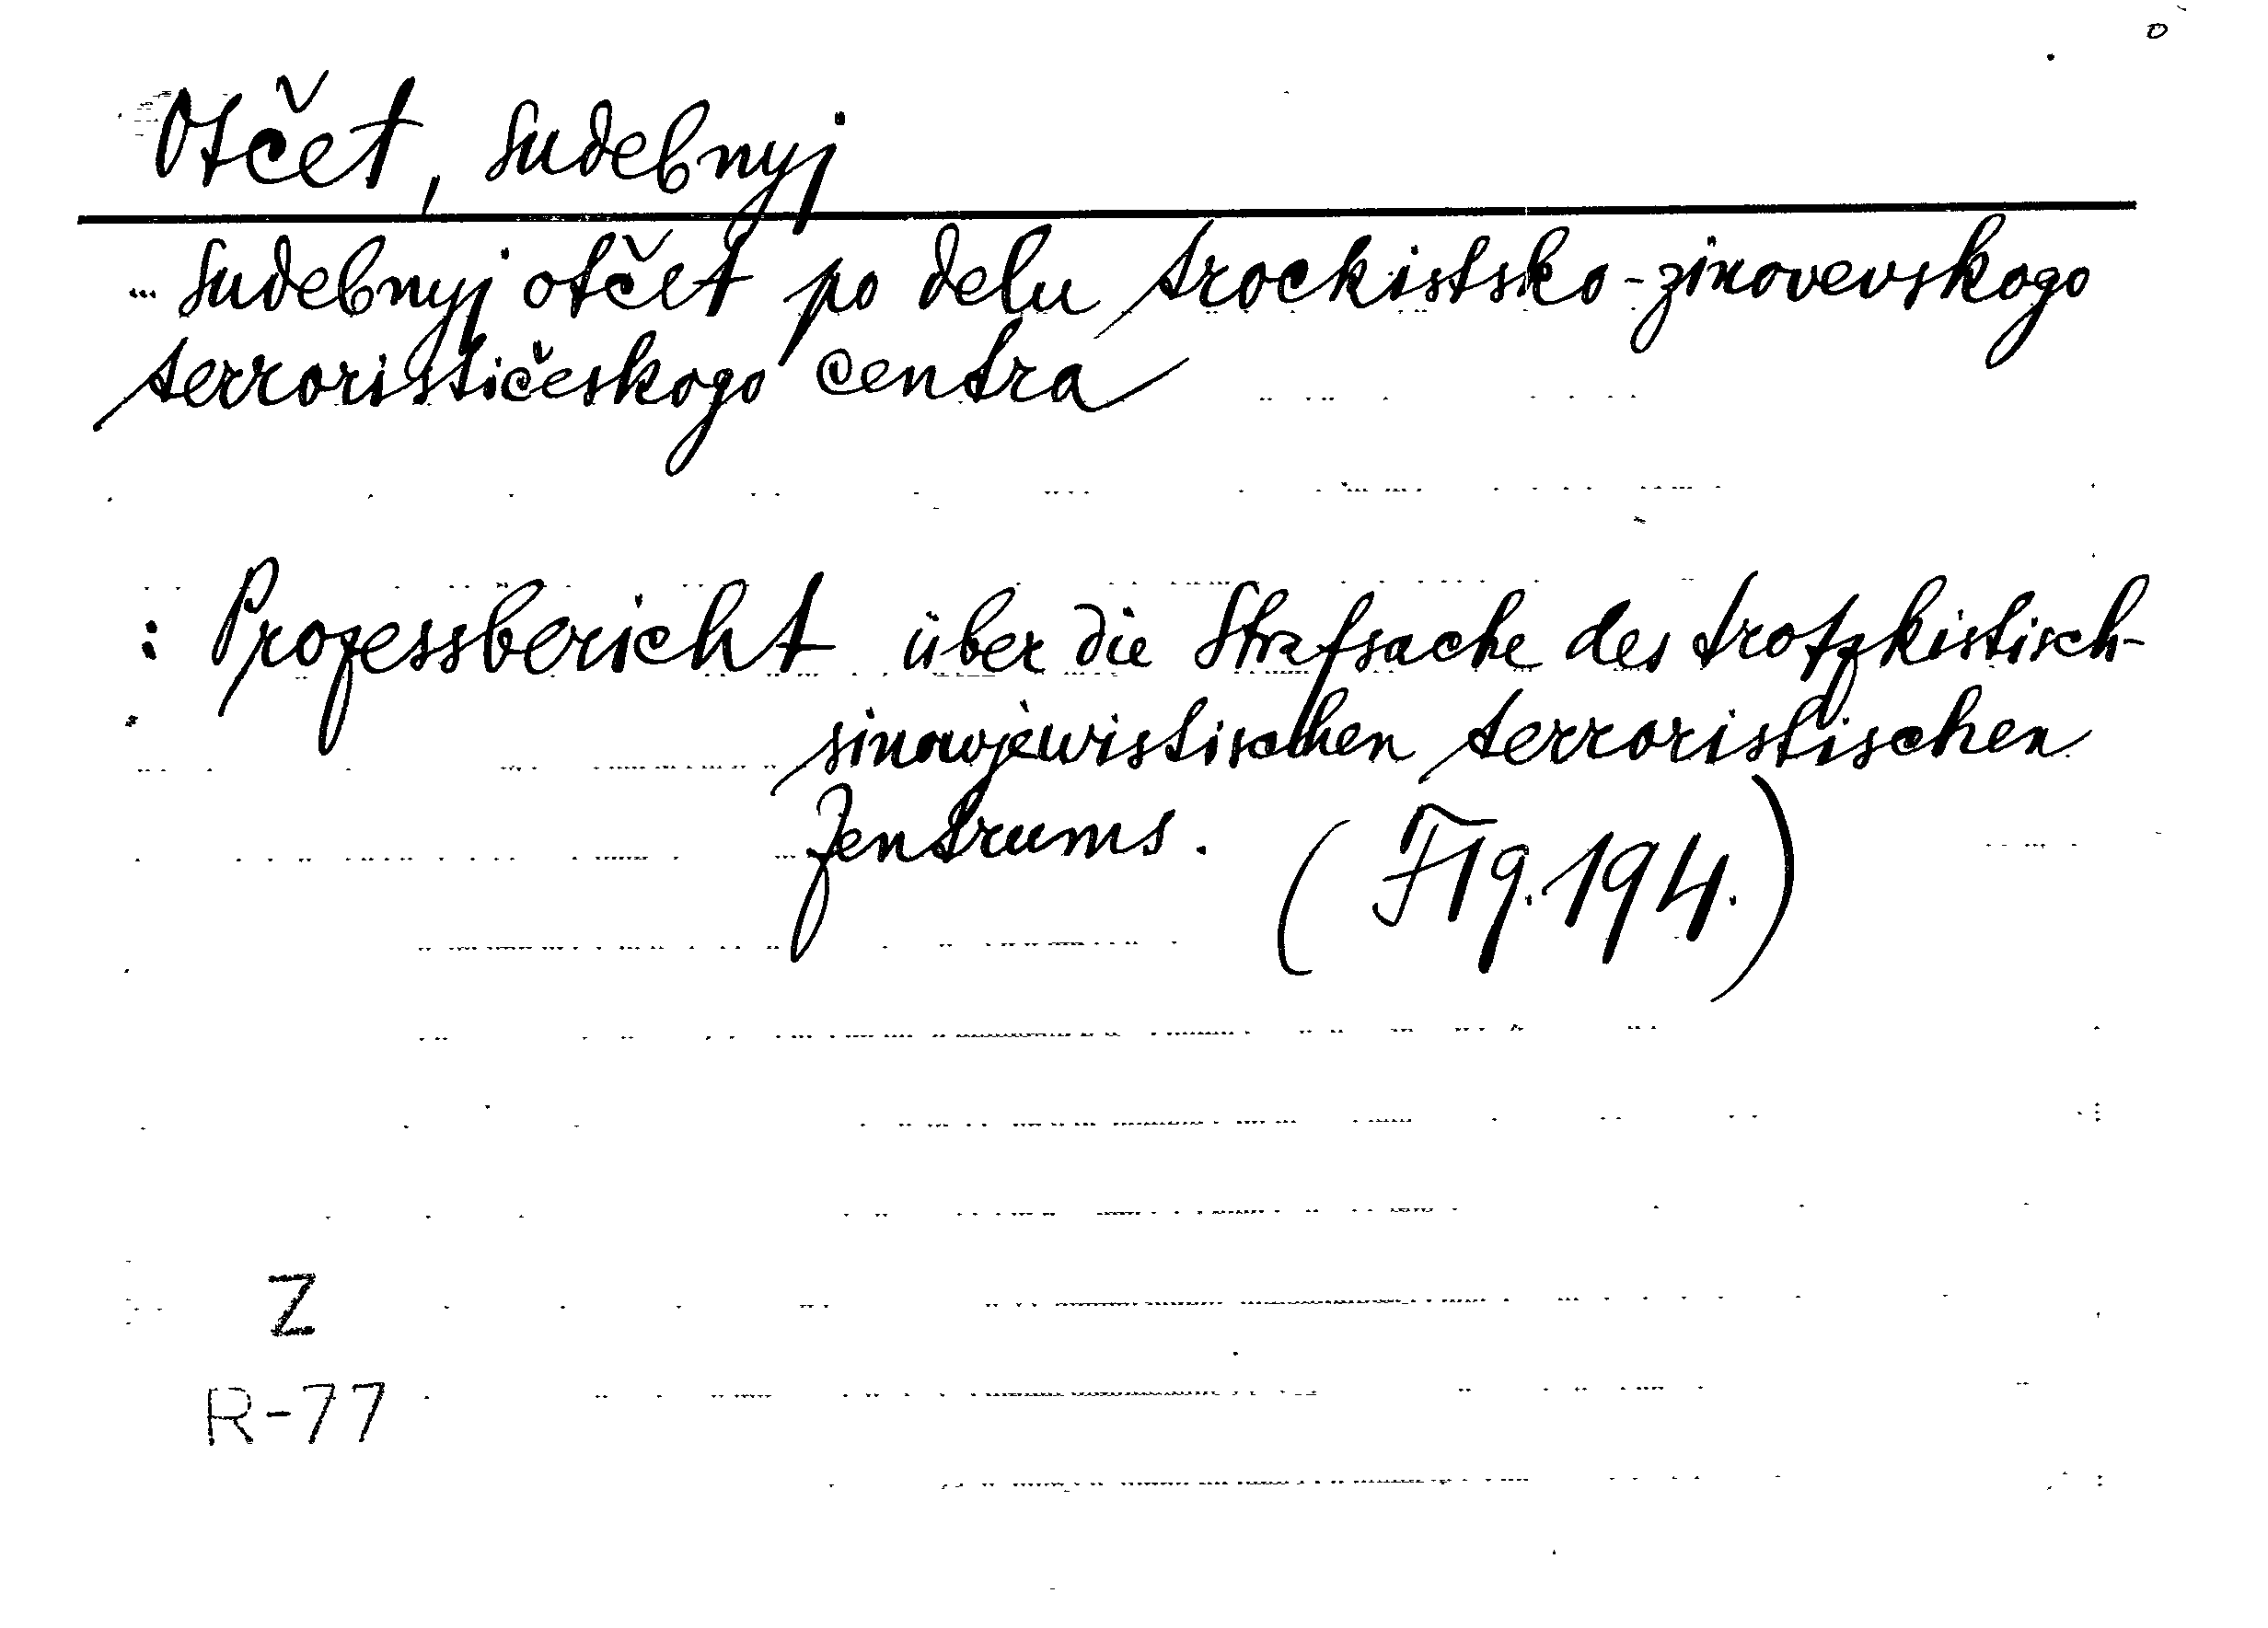 Otčet, sudebnyj
... sudebnyj otčet po delu trockistsko-zinovevskogo
terrorističeskogo centra
: Prozessbericht über die Strafsache des trotzkistisch-
sinowjewistischen terroristischen
Zentrums. (F19.194.)
Z
R-77